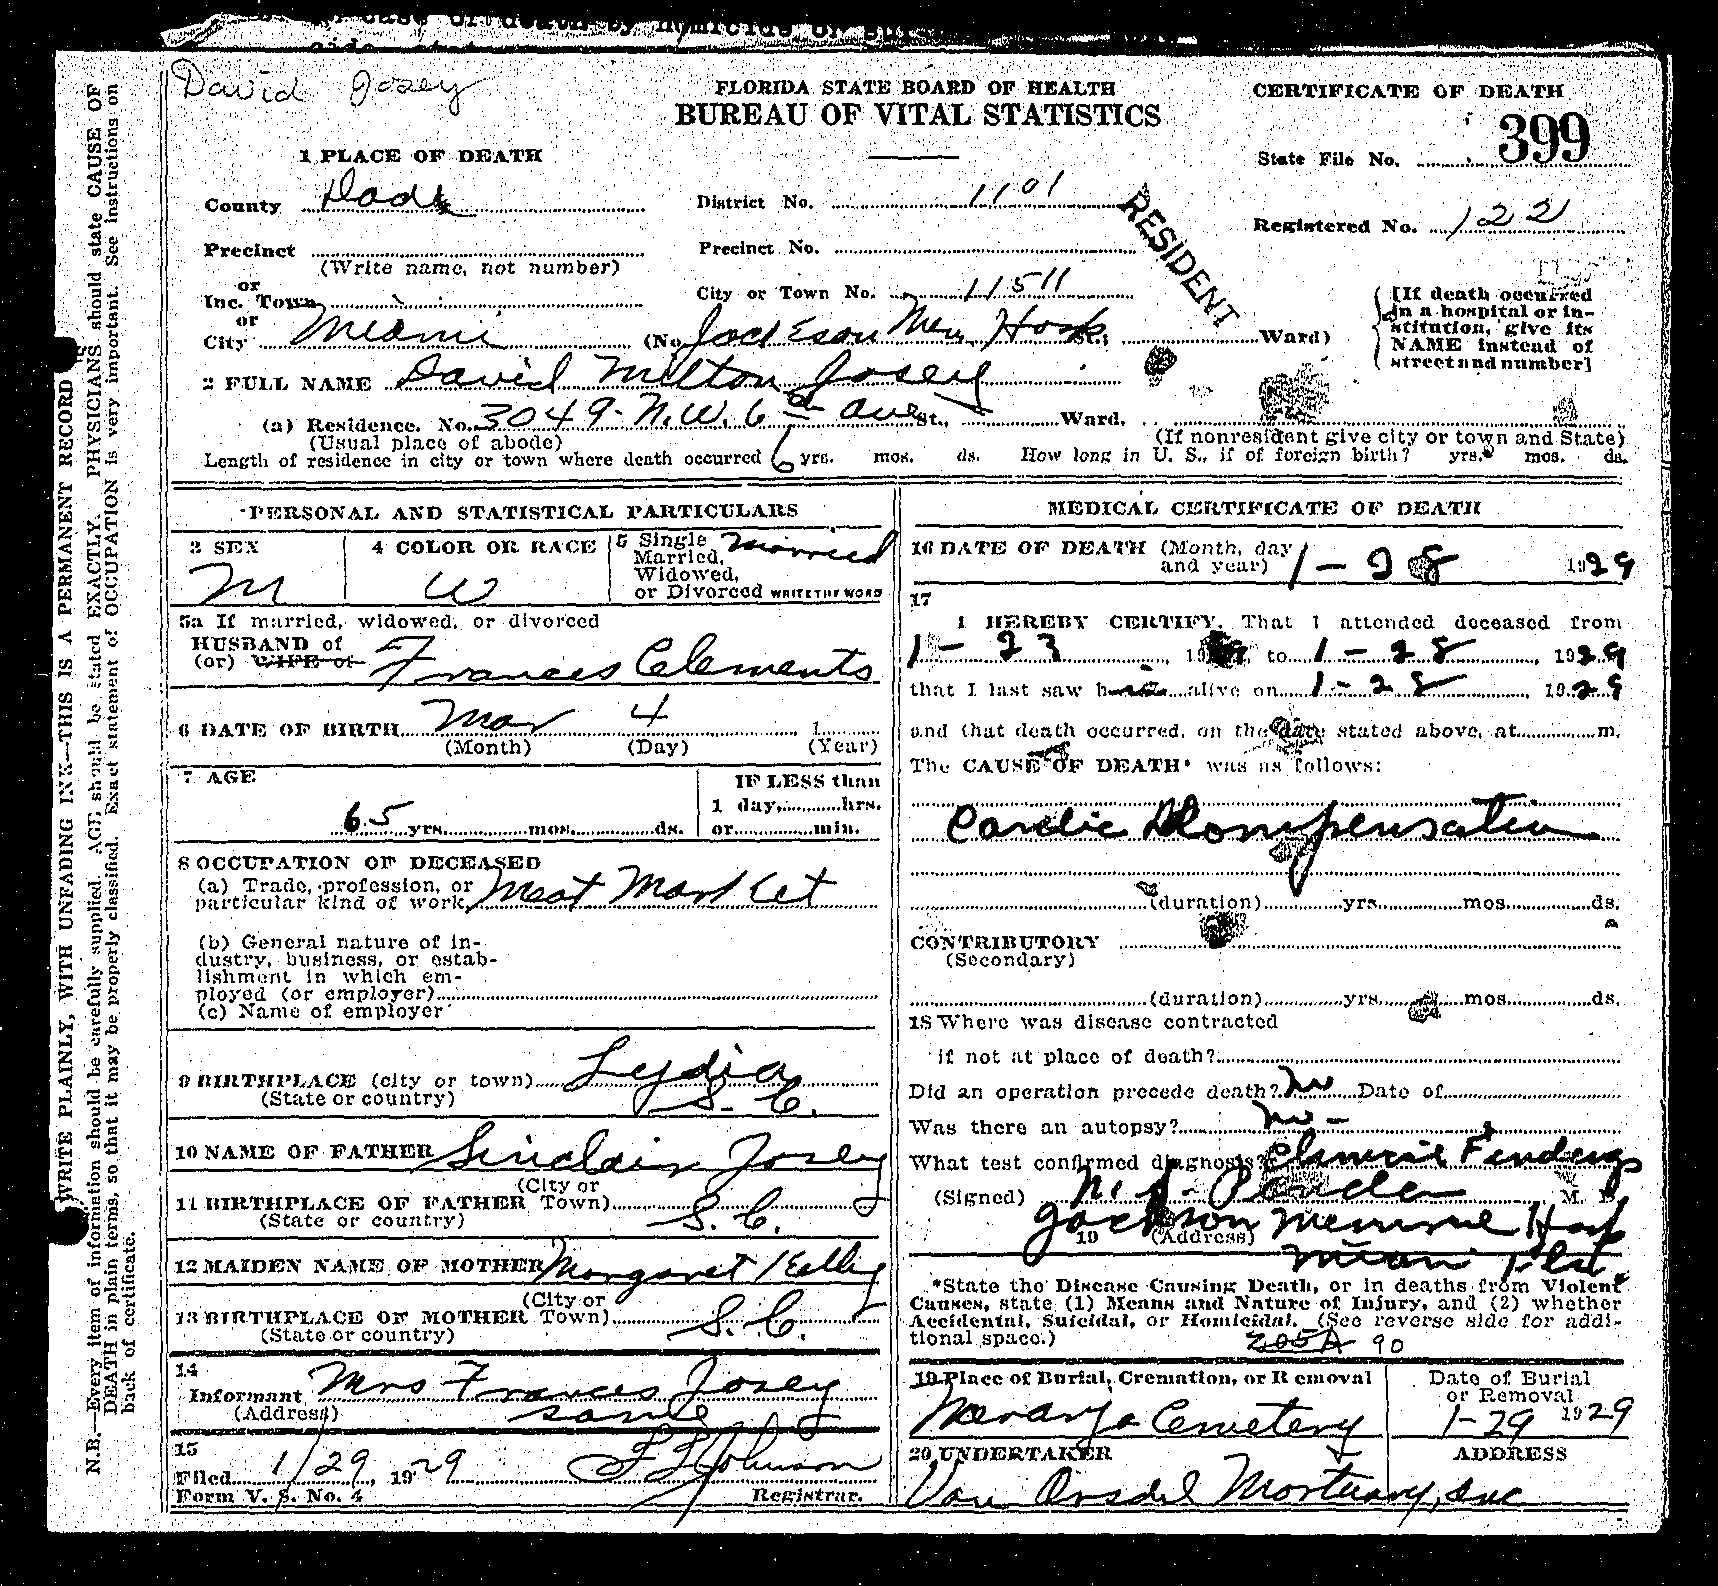 David Josey
FLORIDA STATE BOARD OF HEALTH
BUREAU OF VITAL STATISTICS
CERTIFICATE OF DEATH
State File No. 399
Registered No. 122
1 PLACE OF DEATH
County Dade
District No. 1101
RESIDENT
Precinct
(Write name, not number)
Precinct No.
or
Inc. Town
City or Town No. 11511
or
City Miami (No. Jackson Mem Hosp St.; Ward)
[If death occurred
in a hospital or in-
stitution, give its
NAME instead of
street and number]
2 FULL NAME David Milton Josey
(a) Residence. No. 3049 - N.W. 6 Ave St., Ward.
(Usual place of abode) (If nonresident give city or town and State)
Length of residence in city or town where death occurred 6 yrs. mos. ds. How long in U. S., if of foreign birth? yrs. mos. ds.
PERSONAL AND STATISTICAL PARTICULARS
3 SEX
M
4 COLOR OR RACE
W
5 Single
Married,
Widowed,
or Divorced WRITE THE WORD
Married
5a If married, widowed, or divorced
HUSBAND of
(or) WIFE of
Frances Clements
6 DATE OF BIRTH Mar 4 1
(Month) (Day) (Year)
7 AGE
65 yrs. mos. ds.
IF LESS than
1 day, hrs.
or min.
8 OCCUPATION OF DECEASED
(a) Trade, profession, or
particular kind of work Meat Market
(b) General nature of in-
dustry, business, or estab-
lishment in which em-
ployed (or employer)
(c) Name of employer
9 BIRTHPLACE (city or town) Lydia
(State or country) S. C.
10 NAME OF FATHER Sinclair Josey
11 BIRTHPLACE OF FATHER (City or Town)
(State or country) S. C.
12 MAIDEN NAME OF MOTHER Margaret Kelley
13 BIRTHPLACE OF MOTHER (City or Town)
(State or country) S. C.
14
Informant Mrs Frances Josey
(Address) same
15
Filed 1/29, 1929 Johnson
Form V. S. No. 4 Registrar.
MEDICAL CERTIFICATE OF DEATH
16 DATE OF DEATH (Month, day
and year) 1-28 1929
17
I HEREBY CERTIFY, That I attended deceased from
1-23, 19 to 1-28, 1929
that I last saw h alive on 1-28, 1929
and that death occurred, on the date stated above, at m.
The CAUSE OF DEATH* was as follows:
(duration) yrs. mos. ds.
CONTRIBUTORY
(Secondary)
(duration) yrs. mos. ds.
18 Where was disease contracted
if not at place of death?
Did an operation precede death? No Date of
Was there an autopsy? No -
What test confirmed diagnosis? Findings
(Signed) M. D.
19 (Address)
Miami Fla
*State the Disease Causing Death, or in deaths from Violent
Causes, state (1) Means and Nature of Injury, and (2) whether
Accidental, Suicidal, or Homicidal. (See reverse side for addi-
tional space.)
205A 90
19 Place of Burial, Cremation, or Removal
Cemetery
Date of Burial
or Removal
1-29 1929
20 UNDERTAKER ADDRESS
Van Orsdel Mortuary, Inc
WRITE PLAINLY, WITH UNFADING INK—THIS IS A PERMANENT RECORD
N.B.—Every item of information should be carefully supplied. AGE should be stated EXACTLY. PHYSICIANS should state CAUSE OF
DEATH in plain terms, so that it may be properly classified. Exact statement of OCCUPATION is very important. See instructions on
back of certificate.